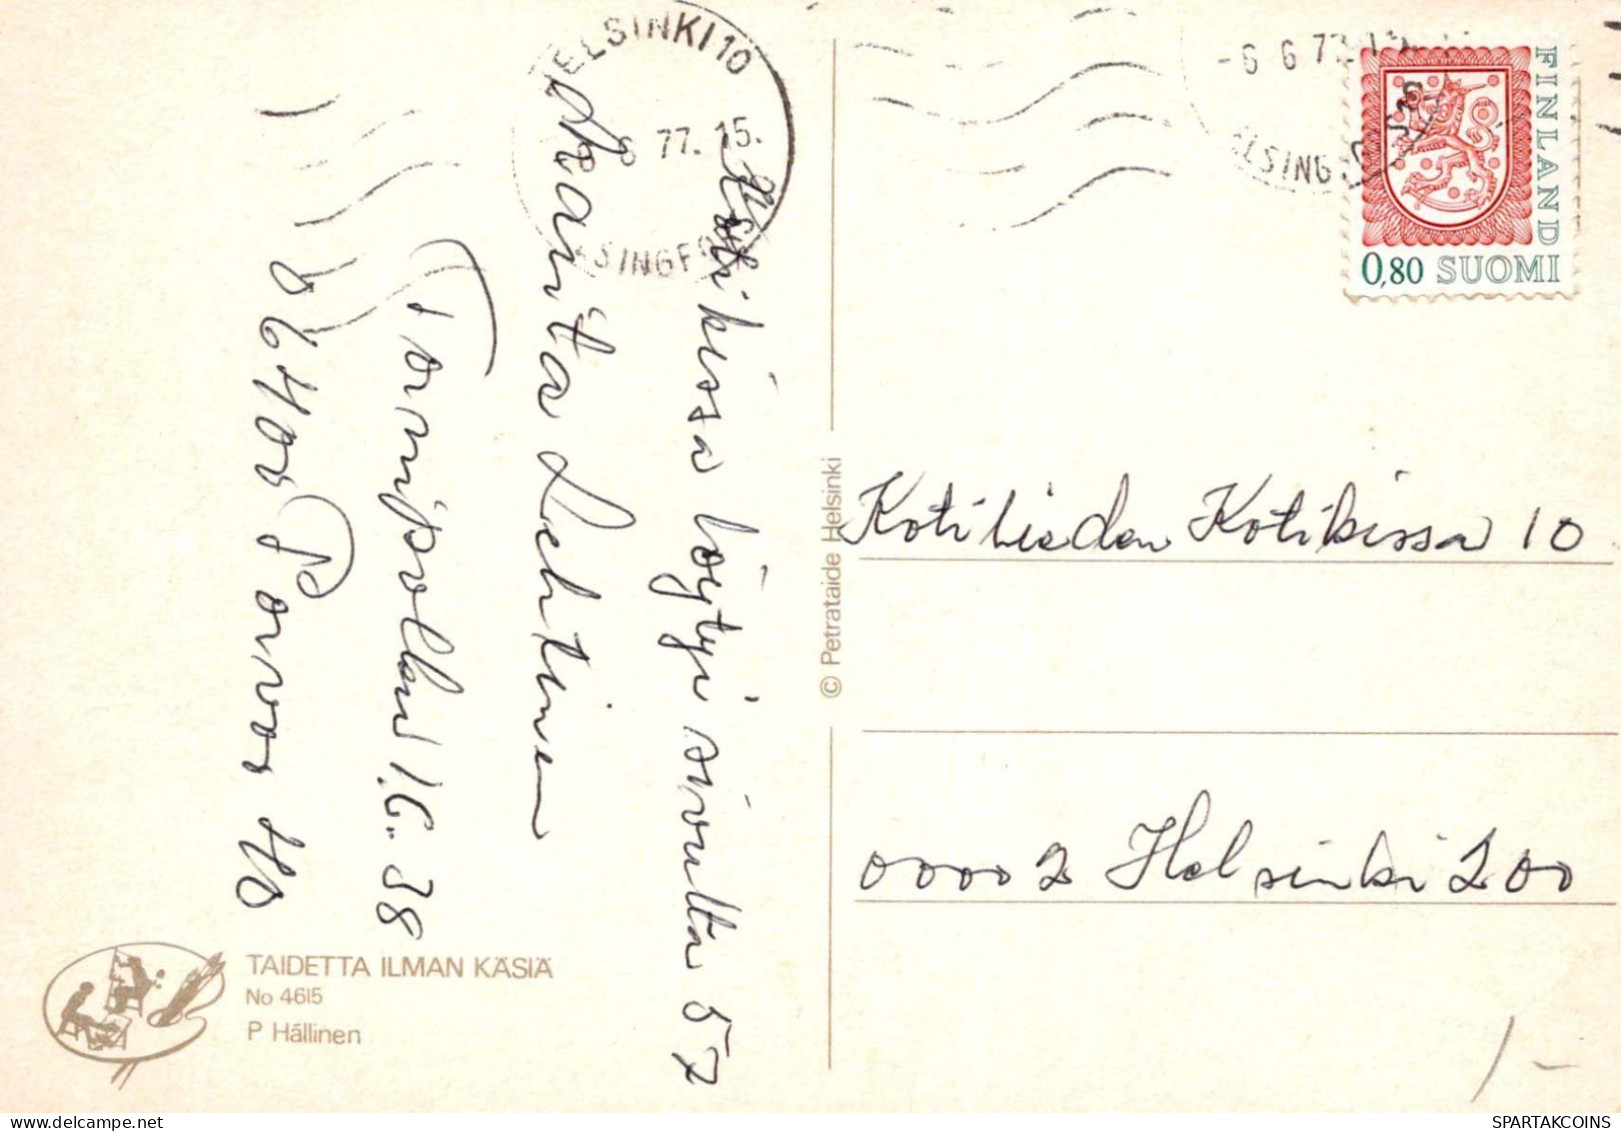 HELSINKI 10
77. 15.
SINGF
Kotikissa löytyi sivulta 57
Marita Lehtinen
Tornipolku 1.C.. 38
06400 Porvoo 40
- 6 6 77
LSING
FINLAND
0,80 SUOMI
© Petrataide Helsinki
Kotilieden Kotikissa 10
00002 Helsinki 200
TAIDETTA ILMAN KÄSIÄ
No 4615
P Hällinen
1-
SPARTAKCOINS